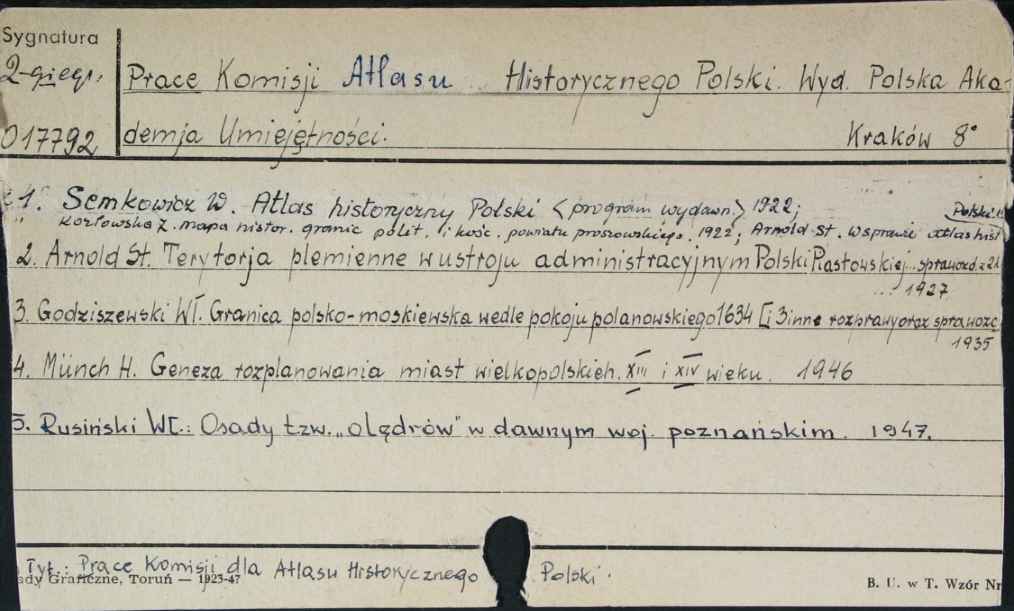 Sygnatura
2-giegr.
Prace Komisji Atlasu Historycznego Polski. Wyd. Polska Aka-
017792
demja Umiejętności. Kraków 8°
1. Semkowicz W. Atlas historyczny Polski <program wydawn.> 1922;
Kozłowska Z. mapa histor. granic polit. i kośc. powiatu proszowskiego. 1922; Arnold St. W sprawie atlas hist
Polski
2. Arnold St. Terytorja plemienne w ustroju administracyjnym Polski Piastowskiej. sprawozd. z
1927
3. Godziszewski Wł. Granica polsko-moskiewska wedle pokoju polanowskiego 1634 [i 3 inne rozprawy oraz sprawozd
1935
4. Münch H. Geneza rozplanowania miast wielkopolskich. XIII i XIV wieku. 1946
5. Rusiński Wł.: Osady tzw. „olędrów" w dawnym woj. poznańskim. 1947.
Tyt.: Prace Komisji dla Atlasu Historycznego Polski.
ady Graficzne, Toruń — 1923-47
B. U. w T. Wzór Nr